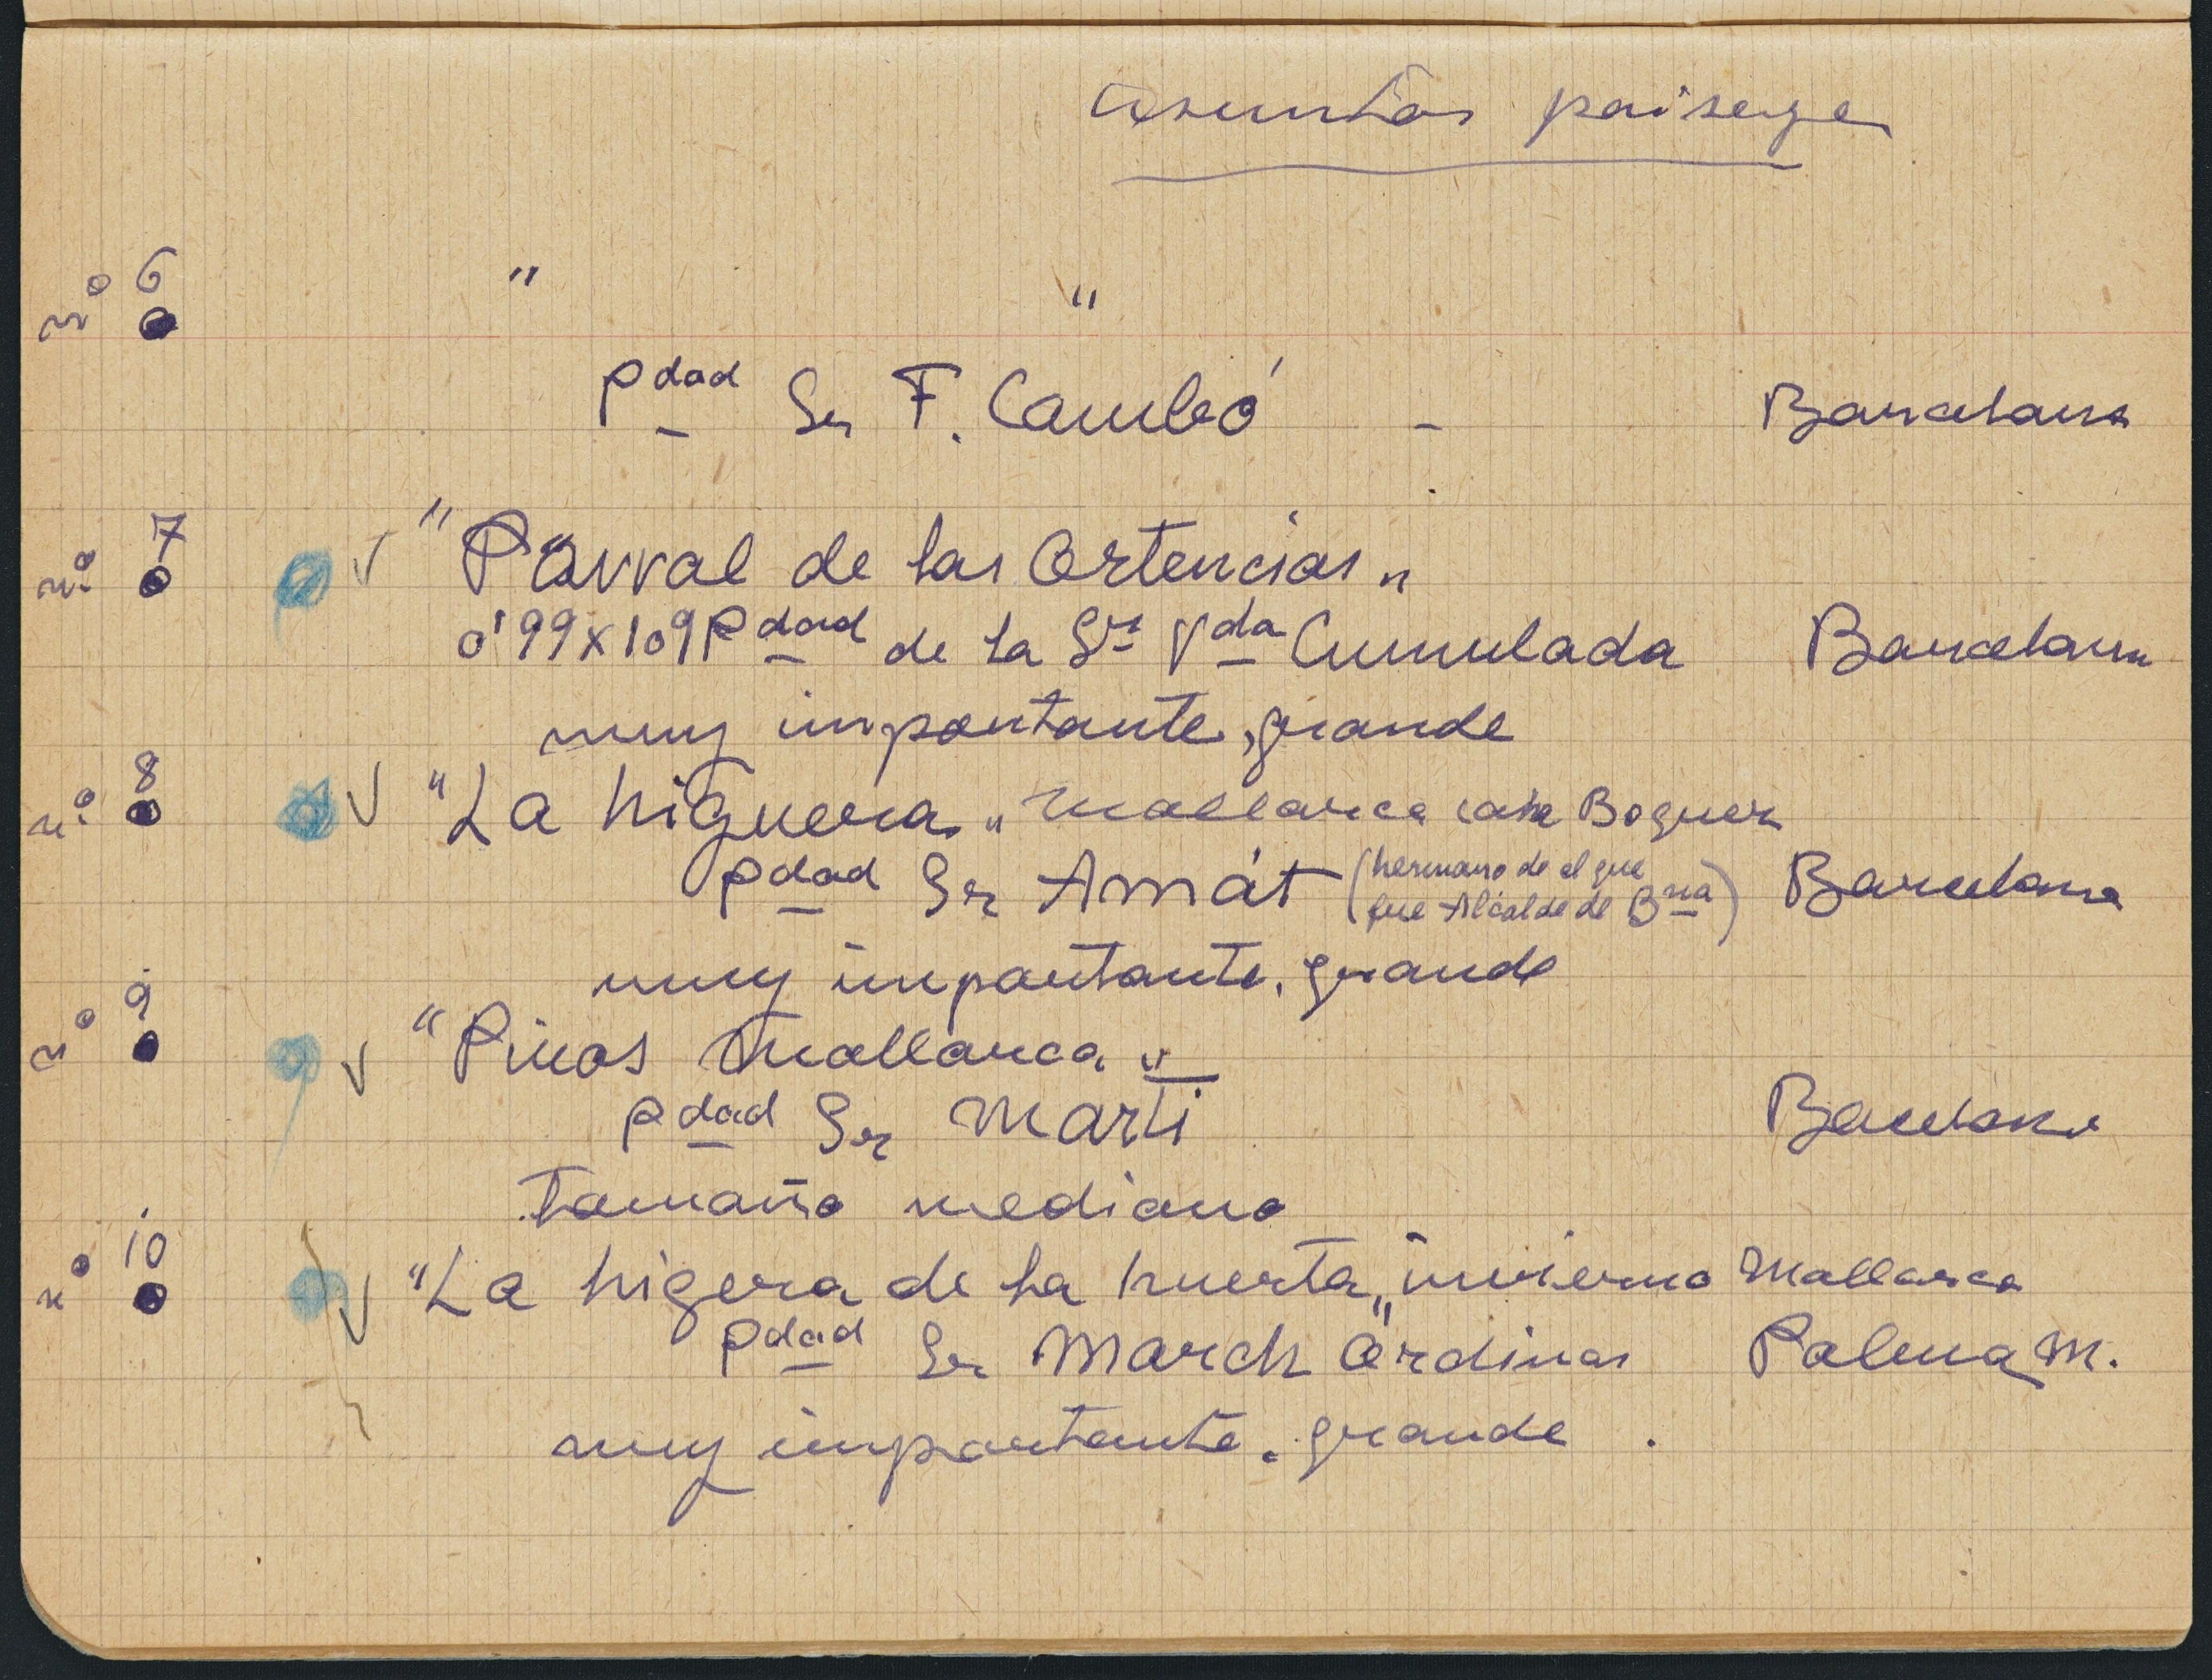 asuntos paisage
nº 6 " "
Pdad Sr F. Cambó - Barcelona
nº 7 "Parral de las Ortencias"
0'99x109 Pdad de la Sra Vda Cumulada Barcelona
muy importante, grande
nº 8 "La higuera" Mallorca casa Boguer
Pdad Sr Amát (hermano de el que Barcelona
fue Alcalde de Bna)
muy importante. grande
nº 9 "Pinos Mallorca"
Pdad Sr Marti Barcelona
tamaño mediano
nº 10 "La higera de la huerta" invierno Mallorca
Pdad Sr March Ordinas Palma M.
muy importante. grande.